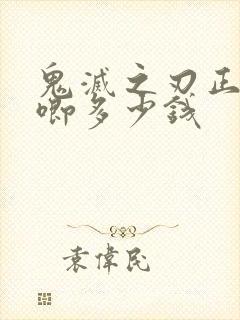 鬼滅之刃正
唧多少錢
袁偉民